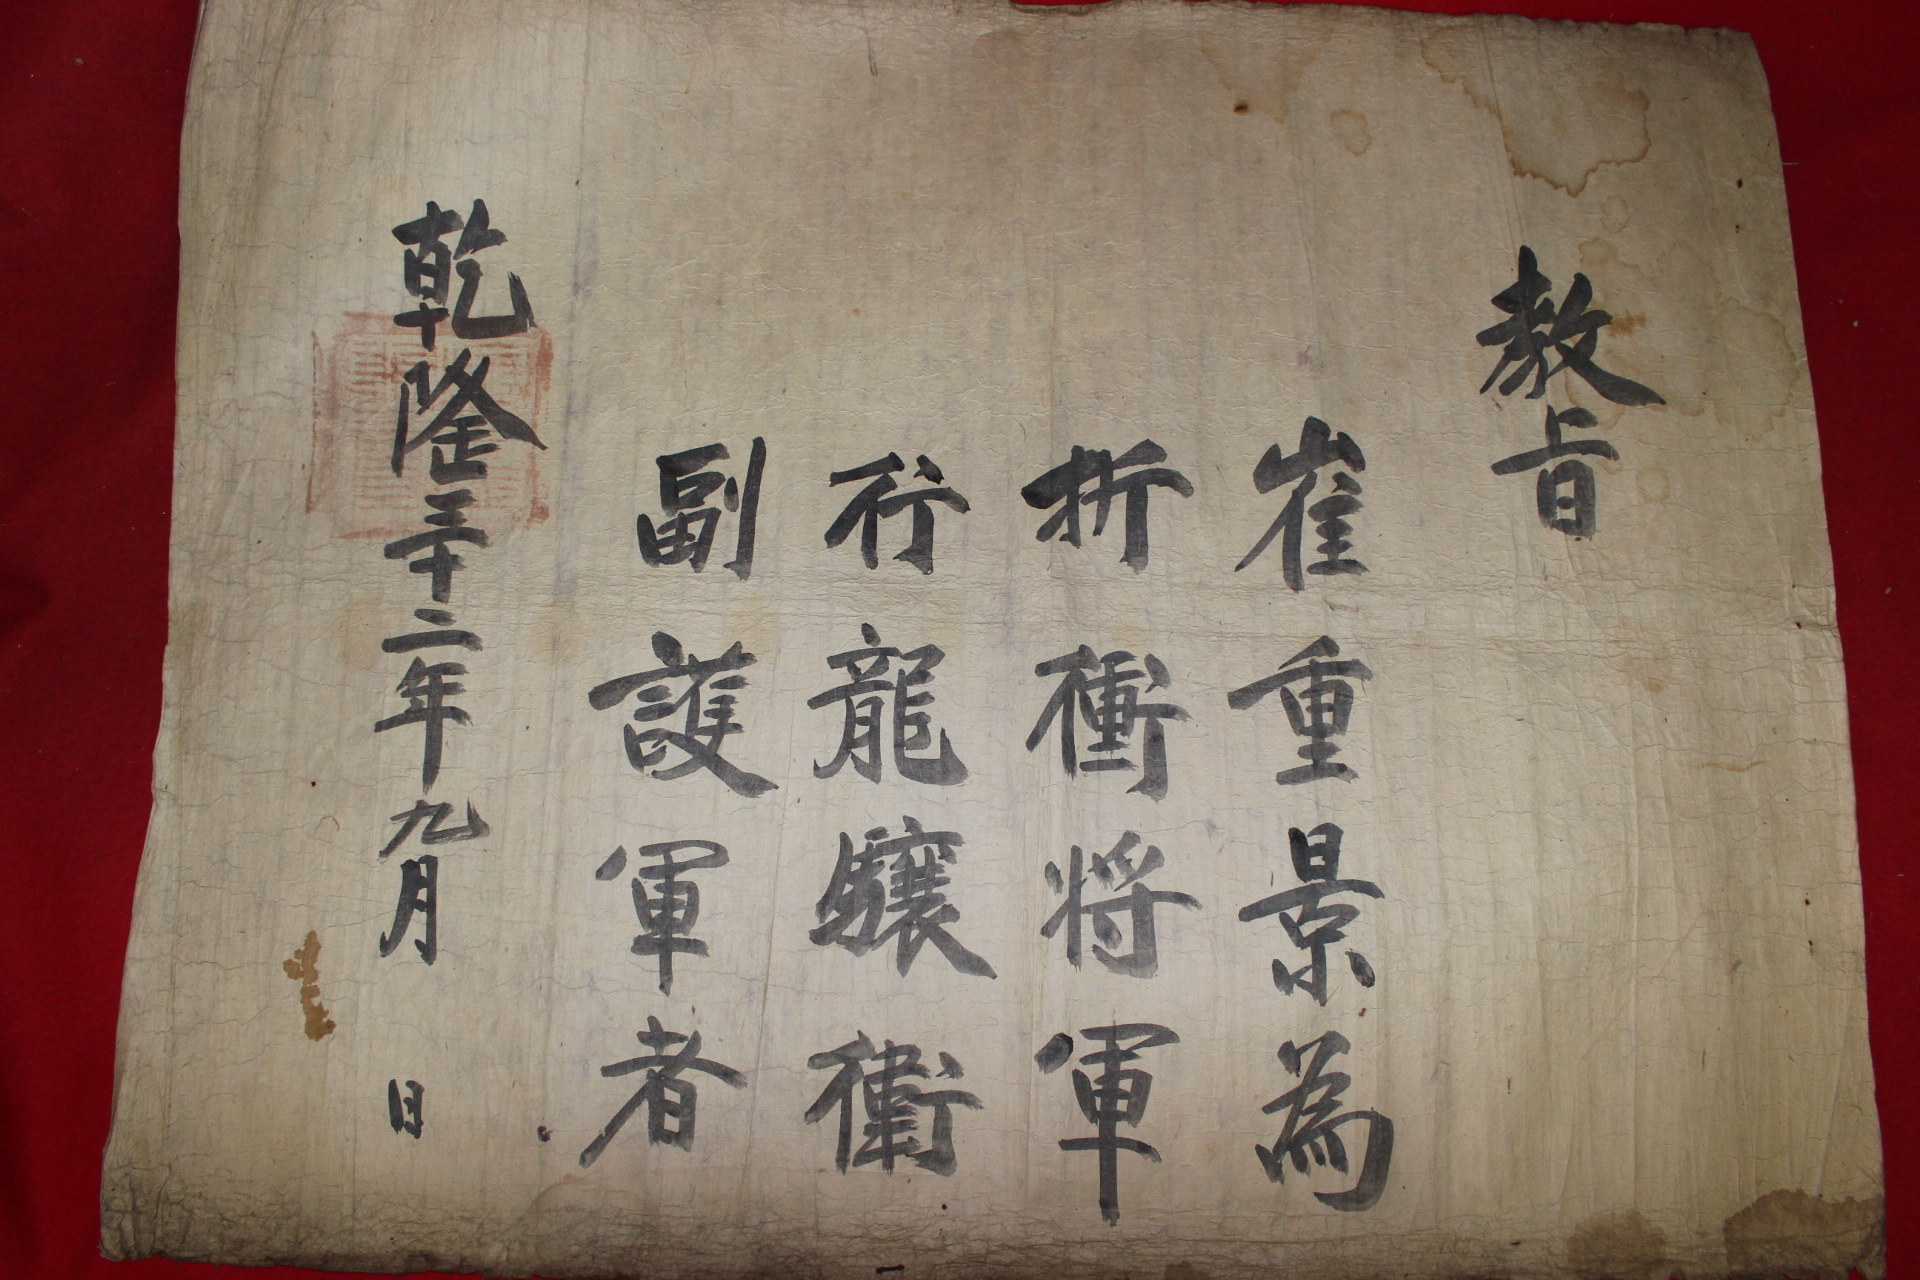 教旨
崔重景為
折衝將軍
行龍驤衛
副護軍者
乾隆三十二年九月 日